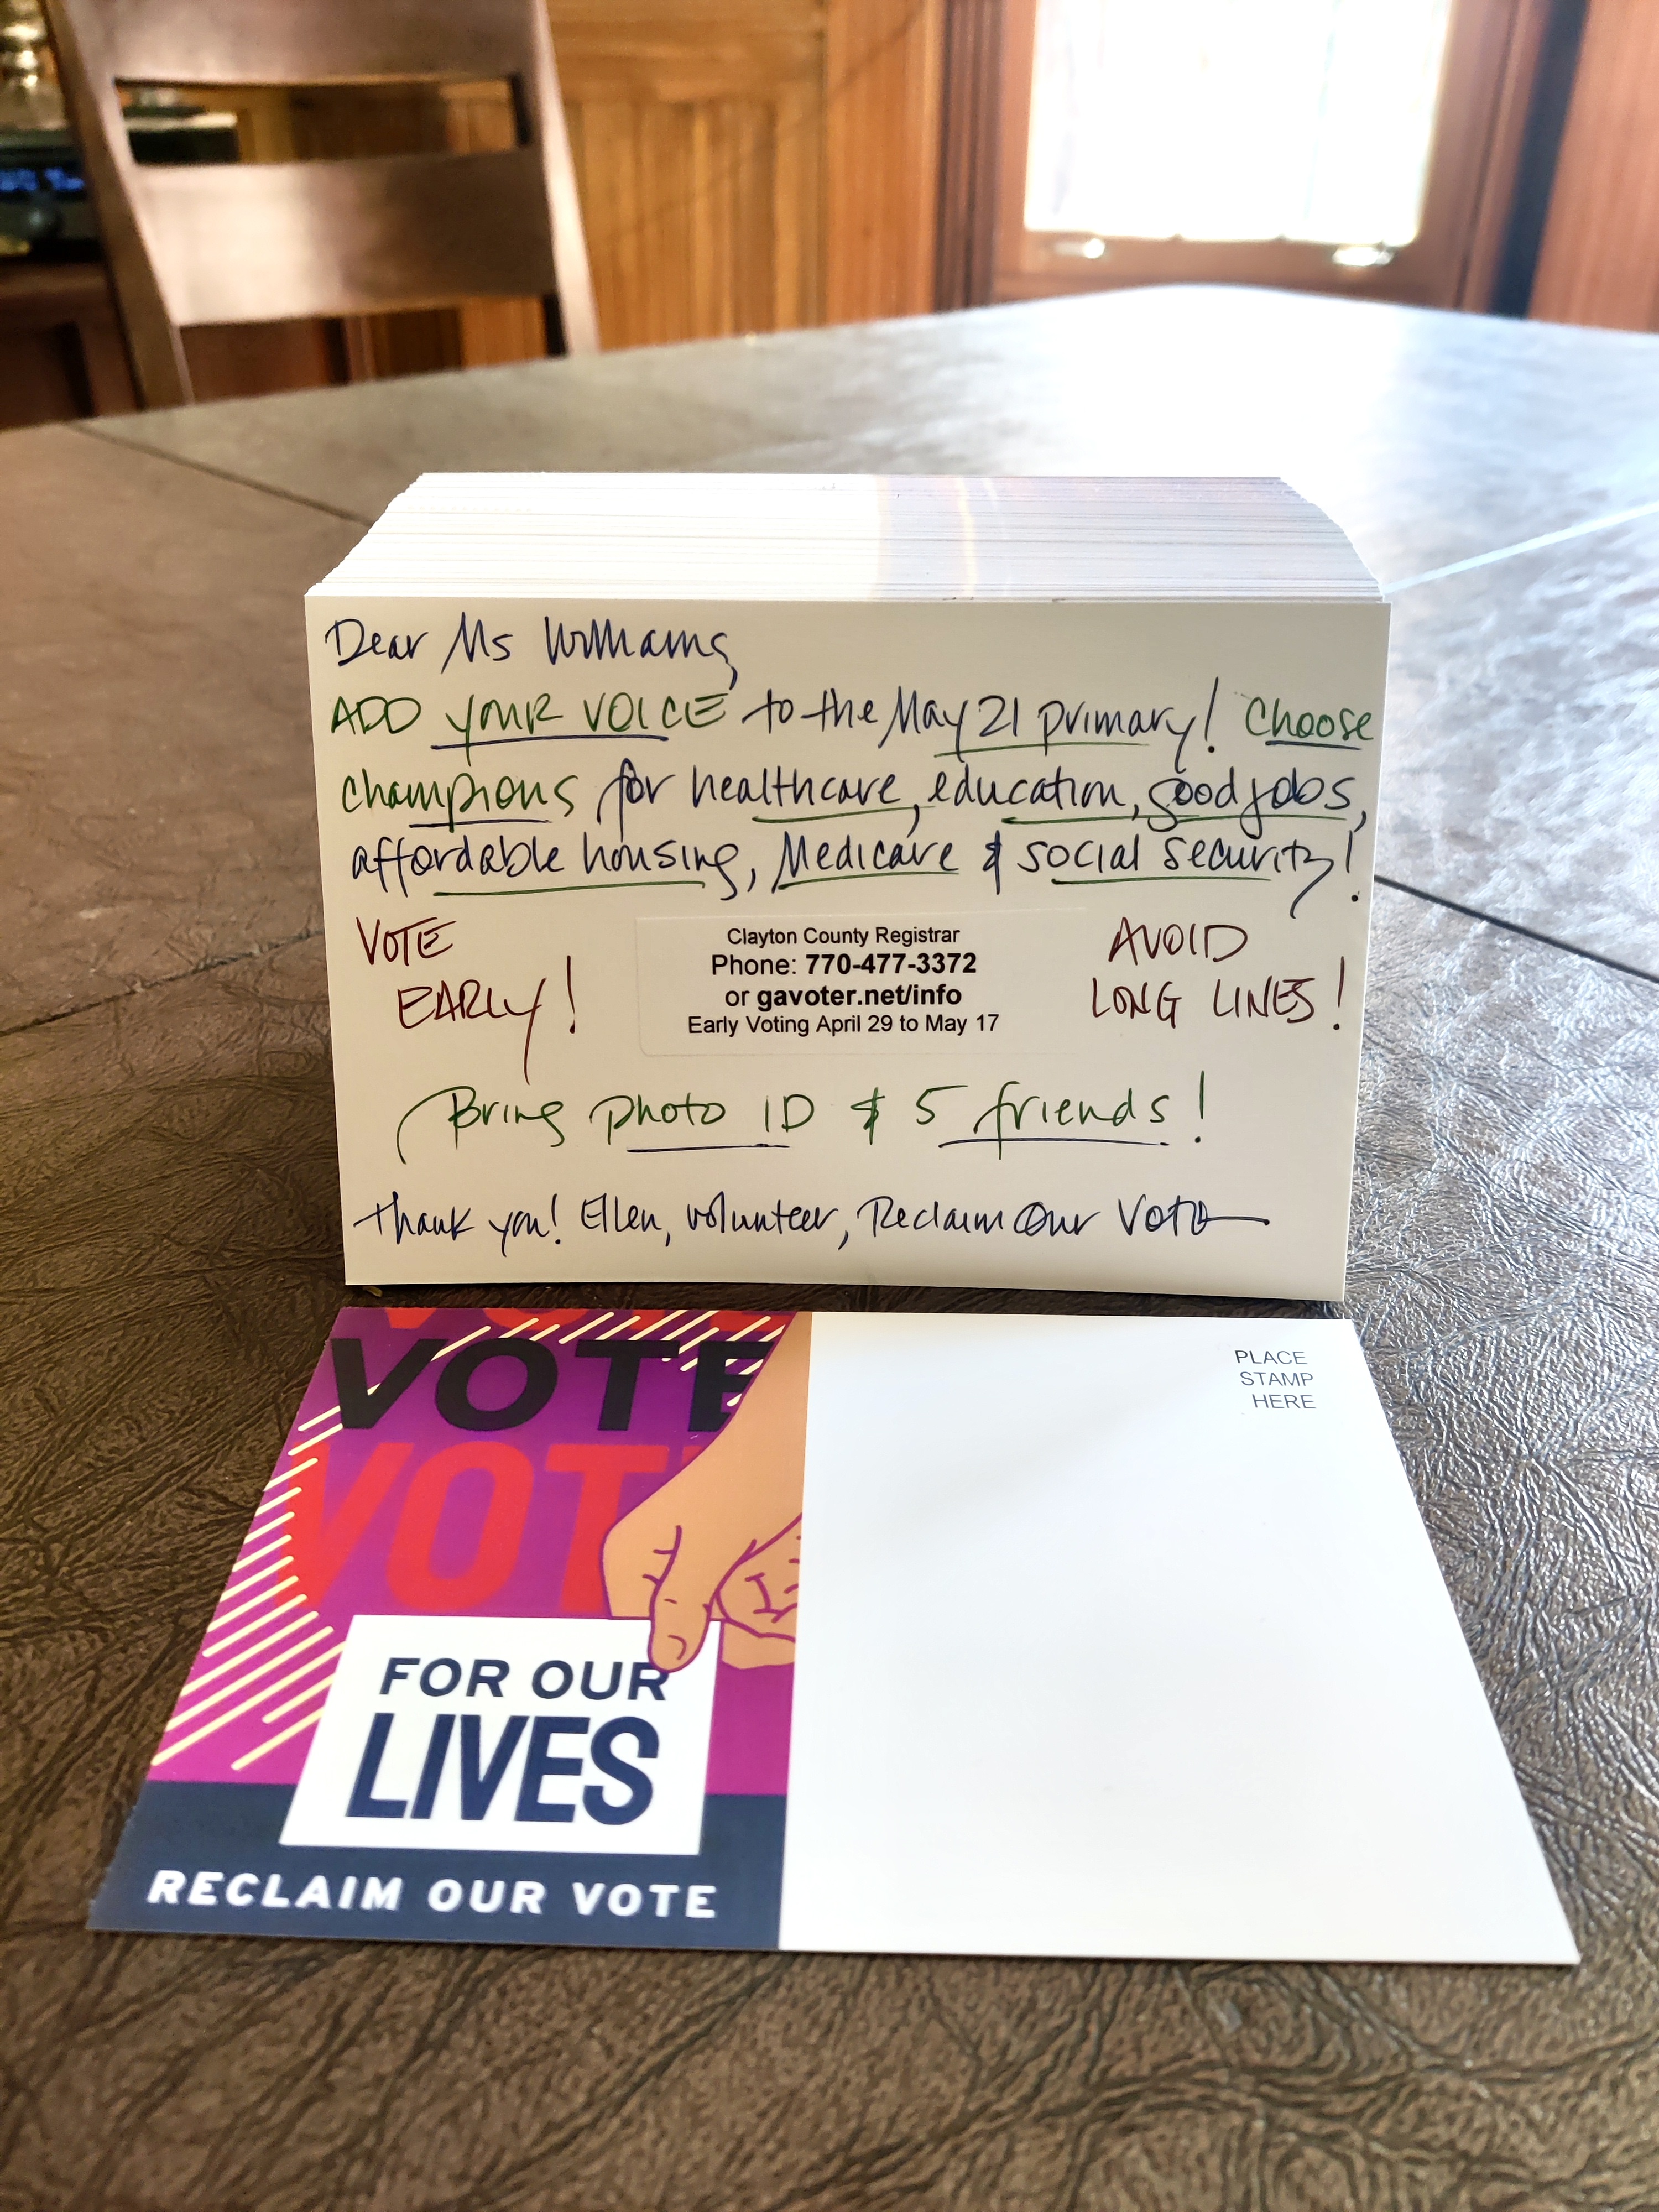 Dear Ms Williams,
ADD YOUR VOICE to the May 21 primary! Choose
champions for healthcare, education, good jobs,
affordable housing, Medicare & social security!
VOTE
EARLY!
Clayton County Registrar
Phone: 770-477-3372
or gavoter.net/info
Early Voting April 29 to May 17
AVOID
LONG LINES!
Bring photo ID & 5 friends!
Thank you! Ellen, volunteer, Reclaim Our Vote
VOTE
VOT
FOR OUR
LIVES
RECLAIM OUR VOTE
PLACE
STAMP
HERE